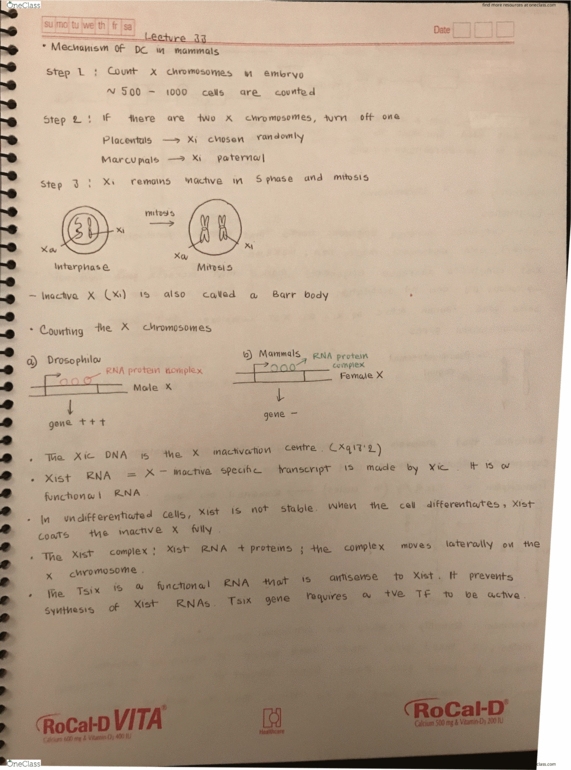 OneClass
find more resources at oneclass.com
su mo tu we th fr sa
Lecture 33
Date
• Mechanism of DC in mammals
Step 1 : Count X chromosomes in embryo
~ 500 - 1000 cells are counted
Step 2 : If there are two X chromosomes, turn off one
Placentals → Xi chosen randomly
Marcupials → Xi paternal
Step 3 : Xi remains inactive in S phase and mitosis
mitosis
→
Xi
Xa
Xa
Xi
Interphase
Mitosis
- Inactive X (Xi) is also called a Barr body
• Counting the X chromosomes
a) Drosophila
RNA protein complex
Male X
gene +++
b) Mammals
RNA protein complex
Female X
gene -
• The Xic DNA is the X inactivation centre. (Xq13.2)
• Xist RNA = X-inactive specific transcript is made by Xic. It is a
functional RNA
• In undifferentiated cells, Xist is not stable. When the cell differentiates, Xist
coats the inactive X fully.
• The Xist complex : Xist RNA + proteins ; the complex moves laterally on the
X chromosome.
• The Tsix is a functional RNA that is antisense to Xist. It prevents
synthesis of Xist RNAs. Tsix gene requires a +ve TF to be active.
RoCal-D VITA®
Calcium 600 mg & Vitamin-D3 400 IU
Healthcare
RoCal-D®
Calcium 500 mg & Vitamin-D3 200 IU
OneClass
find more resources at oneclass.com